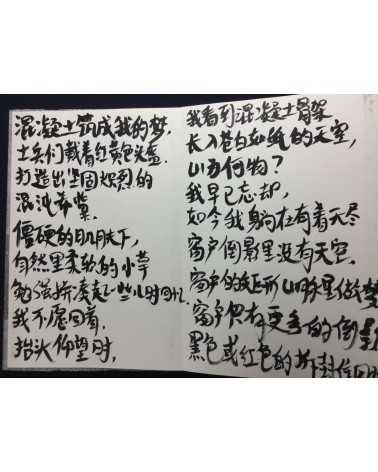 混凝土筑成我的梦,
士兵们戴着红黄色头盔,
打造出坚固炽烈的
混沌
僵硬的肌肤下,
自然里柔软的小草
勉强撩起一些儿时回忆
我不愿回首,
抬头仰望时,
我看到混凝土骨架
长入苍白如纸的天空,
山为何物?
我早已忘却,
如今我躺在有着无尽
窗户倒影里没有天空.
窗户的矩形山形里做梦
窗户仍有更多的倒影
黑色或红色的